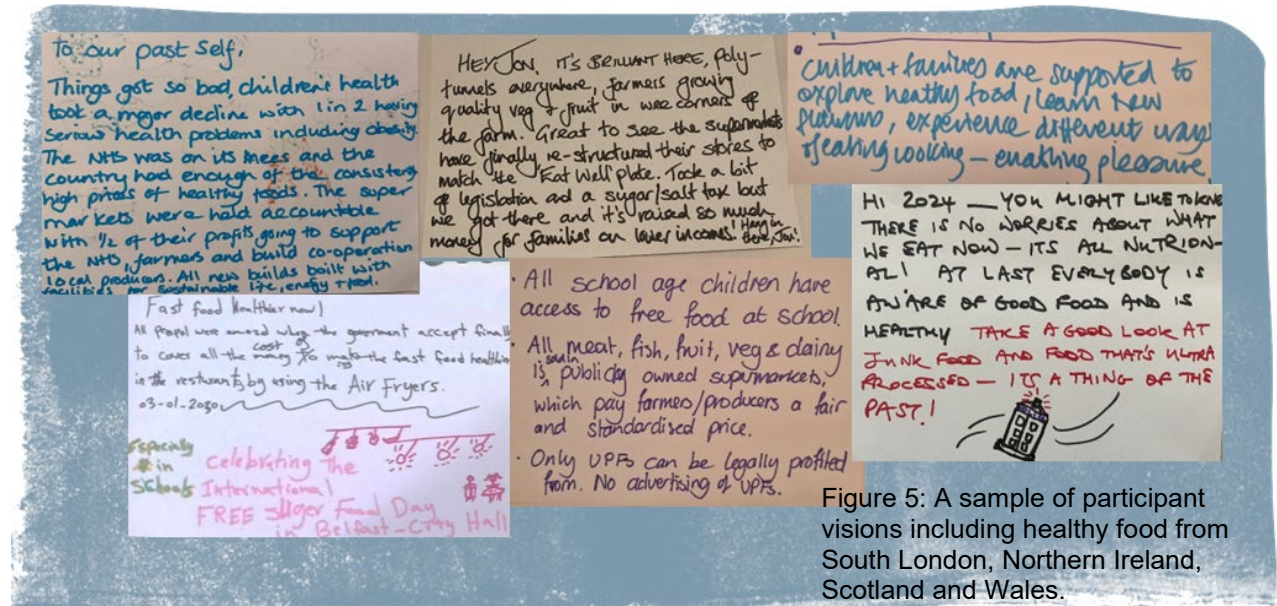 To our past self,
Things got so bad, children's health
took a major decline with 1 in 2 having
serious health problems including obesity.
The NHS was on its knees and the
country had enough of the consistenty
high prices of healthy foods. The super
markets were held accountable
with 1/2 of their profits going to support
the NHS, farmers and build co-operation
local producers. All new builds built with
facilities for sustainable life, energy + food.
HEY JON, IT'S BRILLIANT HERE, Poly-
tunnels everywhere, farmers growing
quality veg + fruit in wee corners of
the farm. Great to see the supermarkets
have finally re-structured their stores to
match the Eat Well plate. Took a bit
of legislation and a sugar/salt tax but
we got there and it's raised so much
money for families on lower incomes! Hang in
there, Jon!
• children + families are supported to
explore healthy food, learn new
flavours, experience different ways
of eating cooking – enabling pleasure.
HI 2024 — YOU MIGHT LIKE TO KNOW
THERE IS NO WORRIES ABOUT WHAT
WE EAT NOW – ITS ALL NUTRION-
AL! AT LAST EVERYBODY IS
AWARE OF GOOD FOOD AND IS
HEALTHY TAKE A GOOD LOOK AT
JUNK FOOD AND FOOD THAT'S ULTRA
PROCESSED – ITS A THING OF THE
PAST!
Fast food Healthier now!
All propol were amazed when the goverment accept finally
to cover all the cost of making the fast food healthier
in the resturants by using the Air Fryers.
03-01-2030
Especialy
in
Schools
Celebrating The
International
FREE suger Food Day
in Belfast – City Hall
• All school age children have
access to free food at school.
• All meat, fish, fruit, veg & dairy
is sold in publicly owned supermarkets,
which pay farmers/producers a fair
and standardised price.
• Only UPFs can be legally profited
from. No advertising of UPFs.
Figure 5: A sample of participant
visions including healthy food from
South London, Northern Ireland,
Scotland and Wales.